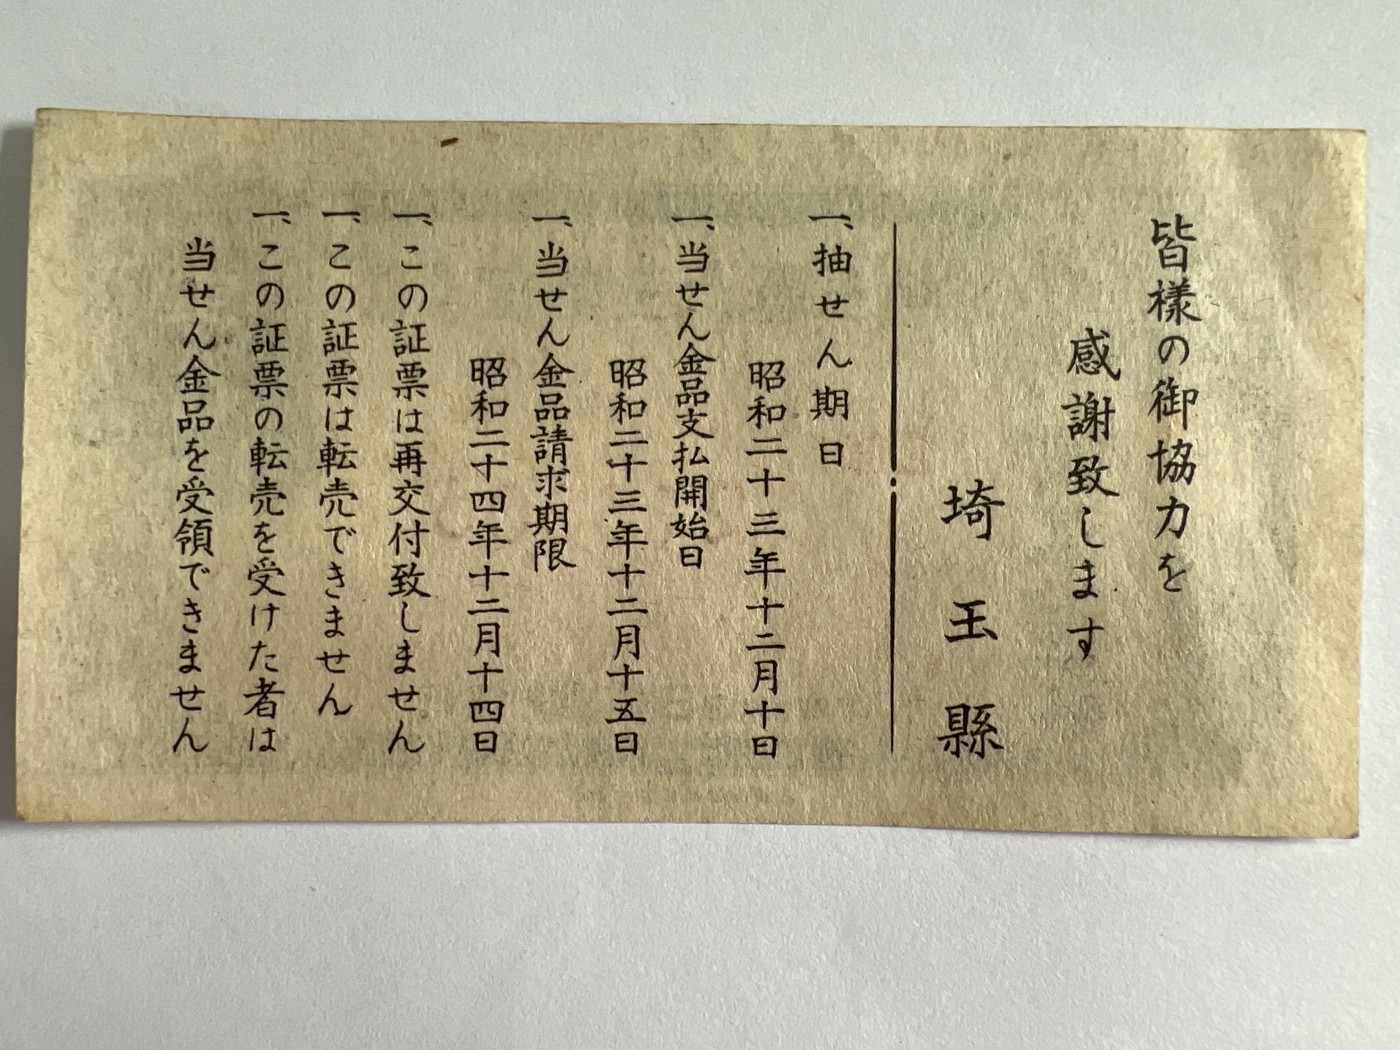 皆様の御協力を
感謝致します
埼玉縣
一、抽せん期日
昭和二十三年十二月十日
一、当せん金品支払開始日
昭和二十三年十二月十五日
一、当せん金品請求期限
昭和二十四年十二月十四日
一、この証票は再交付致しません
一、この証票は転売できません
一、この証票の転売を受けた者は
当せん金品を受領できません